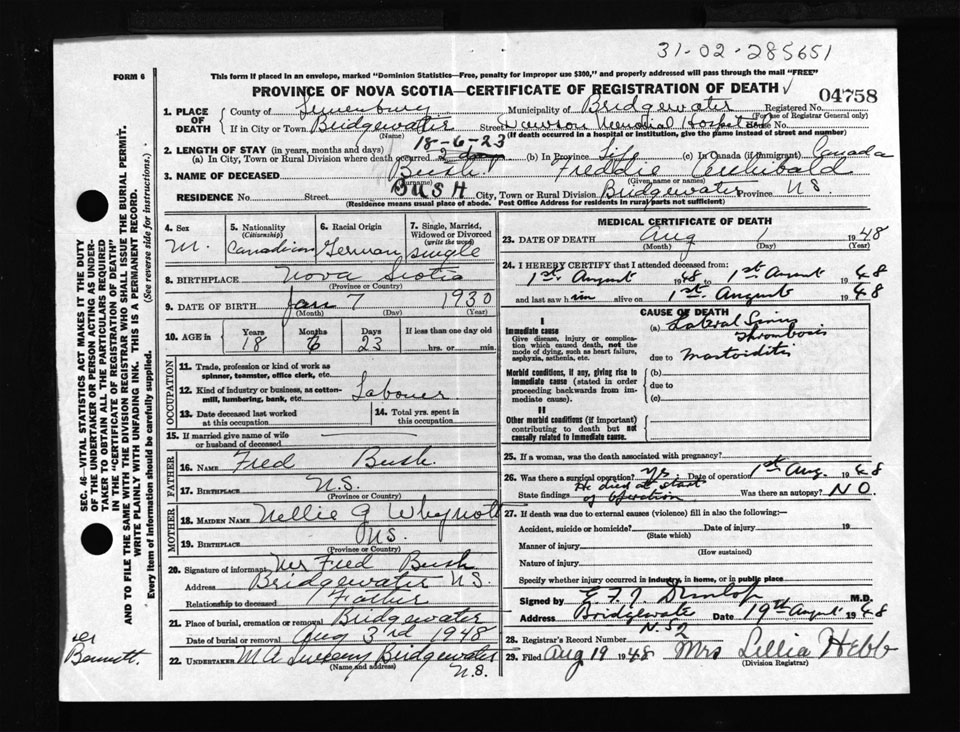 31-02-285651
FORM 6
This form if placed in an envelope, marked "Dominion Statistics—Free, penalty for improper use $300," and properly addressed will pass through the mail "FREE"
PROVINCE OF NOVA SCOTIA—CERTIFICATE OF REGISTRATION OF DEATH
04758
1. PLACE OF DEATH
County of Lunenburg Municipality of Bridgewater Registered No.
(For use of Registrar General only)
If in City or Town Bridgewater Street Dawson Memorial Hospital House No.
(Name) (If death occurred in a hospital or institution, give the name instead of street and number)
18-6-23
2. LENGTH OF STAY (in years, months and days)
(a) In City, Town or Rural Division where death occurred 2 days (b) In Province Life (c) In Canada (if immigrant) Canada
3. NAME OF DECEASED Bush Freddie Archibald
(Surname) (Given name or names)
BUSH
RESIDENCE No. Street City, Town or Rural Division Bridgewater Province N.S.
(Residence means usual place of abode. Post Office Address for residents in rural parts not sufficient)
4. Sex
M.
5. Nationality
(Citizenship)
Canadian
6. Racial Origin
German
7. Single, Married, Widowed or Divorced
(write the word)
single
8. BIRTHPLACE Nova Scotia
(Province or Country)
9. DATE OF BIRTH Jan 7 1930
(Month) (Day) (Year)
10. AGE in Years Months Days If less than one day old
18 6 23 hrs. or min.
OCCUPATION
11. Trade, profession or kind of work as
spinner, teamster, office clerk, etc.
12. Kind of industry or business, as cotton-
mill, lumbering, bank, etc. Labourer
13. Date deceased last worked
at this occupation
14. Total yrs. spent in
this occupation
15. If married give name of wife
or husband of deceased
FATHER
16. NAME Fred Bush
17. BIRTHPLACE N.S.
(Province or Country)
MOTHER
18. MAIDEN NAME Nellie G Whynott
19. BIRTHPLACE N.S.
(Province or Country)
20. Signature of informant Mr Fred Bush
Address Bridgewater N.S.
Relationship to deceased Father
21. Place of burial, cremation or removal Bridgewater
Date of burial or removal Aug 3rd 1948
22. UNDERTAKER M A Sweeny Bridgewater
(Name and address) N.S.
MEDICAL CERTIFICATE OF DEATH
23. DATE OF DEATH Aug 1 1948
(Month) (Day) (Year)
24. I HEREBY CERTIFY that I attended deceased from:
1st. August 1948 to 1st August 1948
and last saw him alive on 1st. August 1948
CAUSE OF DEATH
I
Immediate cause
Give disease, injury or complica-
tion which caused death, not the
mode of dying, such as heart failure,
asphyxia, asthenia, etc.
(a) Lateral Sinus
Thrombosis
due to Mastoiditis
Morbid conditions, if any, giving rise to
immediate cause (stated in order
proceeding backwards from im-
mediate cause).
(b)
due to
(c)
II
Other morbid conditions (if important)
contributing to death but not
causally related to immediate cause.
25. If a woman, was the death associated with pregnancy?
26. Was there a surgical operation? Yes. Date of operation 1st Aug. 1948
He died at start
State findings of operation Was there an autopsy? NO.
27. If death was due to external causes (violence) fill in also the following:—
Accident, suicide or homicide? Date of injury 19
(State which)
Manner of injury
(How sustained)
Nature of injury
Specify whether injury occurred in industry, in home, or in public place
Signed by Dunlop M.D.
Address Bridgewater Date 19th August 1948
N.S.
28. Registrar's Record Number 52
29. Filed Aug 19 1948 Mrs Lillia Hebb
(Division Registrar)
SEC. 46—VITAL STATISTICS ACT MAKES IT THE DUTY
OF THE UNDERTAKER OR PERSON ACTING AS UNDER-
TAKER TO OBTAIN ALL THE PARTICULARS REQUIRED
IN THE "CERTIFICATE OF REGISTRATION OF DEATH"
AND TO FILE THE SAME WITH THE DIVISION REGISTRAR WHO SHALL ISSUE THE BURIAL PERMIT.
WRITE PLAINLY WITH UNFADING INK. THIS IS A PERMANENT RECORD.
Every item of Information should be carefully supplied. (See reverse side for instructions.)
per
Bennett.